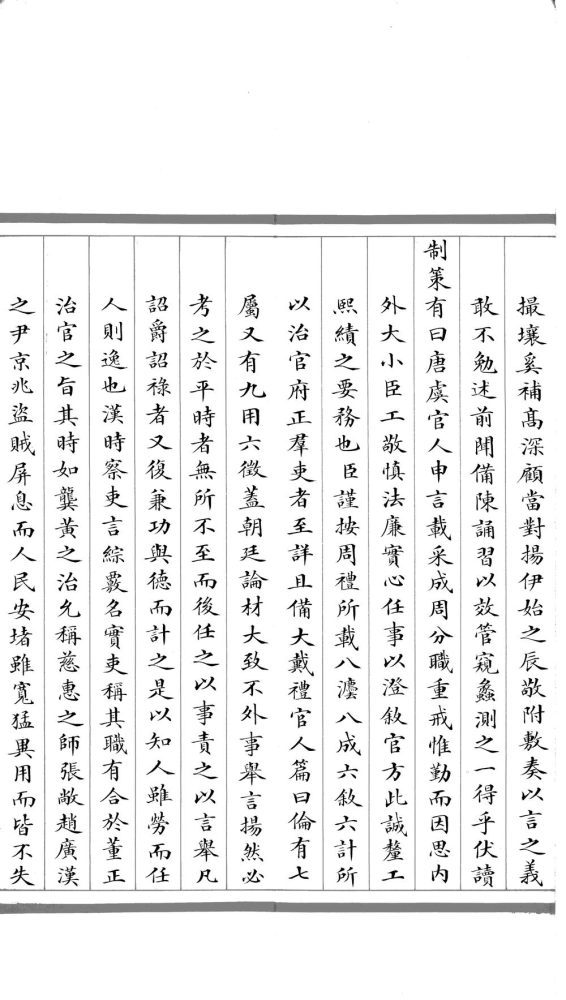 撮壤奚補髙深顧當對揚伊始之辰敬附敷奏以言之義
敢不勉述前聞備陳誦習以效管窺蠡測之一得乎伏讀
制策有曰唐虞官人申言載采成周分職重戒惟勤而因思内
外大小臣工敬慎法廉實心任事以澄敘官方此誠釐工
熙績之要務也臣謹按周禮所載八灋八成六敘六計所
以治官府正羣吏者至詳且備大戴禮官人篇曰倫有七
屬又有九用六徵蓋朝廷論材大致不外事舉言揚然必
考之於平時者無所不至而後任之以事責之以言舉凡
詔爵詔祿者又復兼功與德而計之是以知人雖勞而任
人則逸也漢時察吏言綜覈名實吏稱其職有合於董正
治官之旨其時如龔黃之治允稱慈惠之師張敞趙廣漢
之尹京兆盜賊屏息而人民安堵雖寬猛異用而皆不失